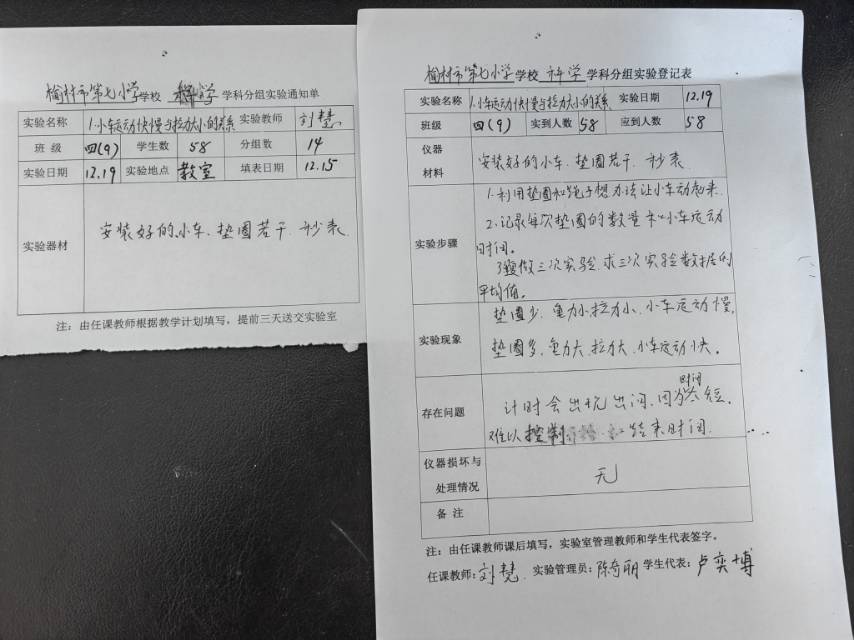 榆林市第七小学学校 科学 学科分组实验通知单
实验名称 1.小车运动快慢与拉力大小的关系 实验教师 刘慧
班 级 四(9) 学生数 58 分组数 14
实验日期 12.19 实验地点 教室 填表日期 12.15
实验器材 安装好的小车、垫圈若干、秒表
注：由任课教师根据教学计划填写，提前三天送交实验室
榆林市第七小学学校 科学 学科分组实验登记表
实验名称 1.小车运动快慢与拉力大小的关系 实验日期 12.19
班级 四(9) 实到人数 58 应到人数 58
仪器
材料
安装好的小车、垫圈若干、秒表
实验步骤
1.利用垫圈和绳子想办法让小车动起来.
2.记录每次垫圈的数量和小车运动
时间。
3.做三次实验.求三次实验数据的
平均值。
实验现象
垫圈少、重力小、拉力小、小车运动慢,
垫圈多、重力大、拉力大、小车运动快。
存在问题
时间
计时会出现出问、因为太短.
难以控制 结束时间.
仪器损坏与
处理情况
无
备 注
注：由任课教师课后填写，实验室管理教师和学生代表签字。
任课教师:刘慧 实验管理员:陈奇丽 学生代表:卢奕博